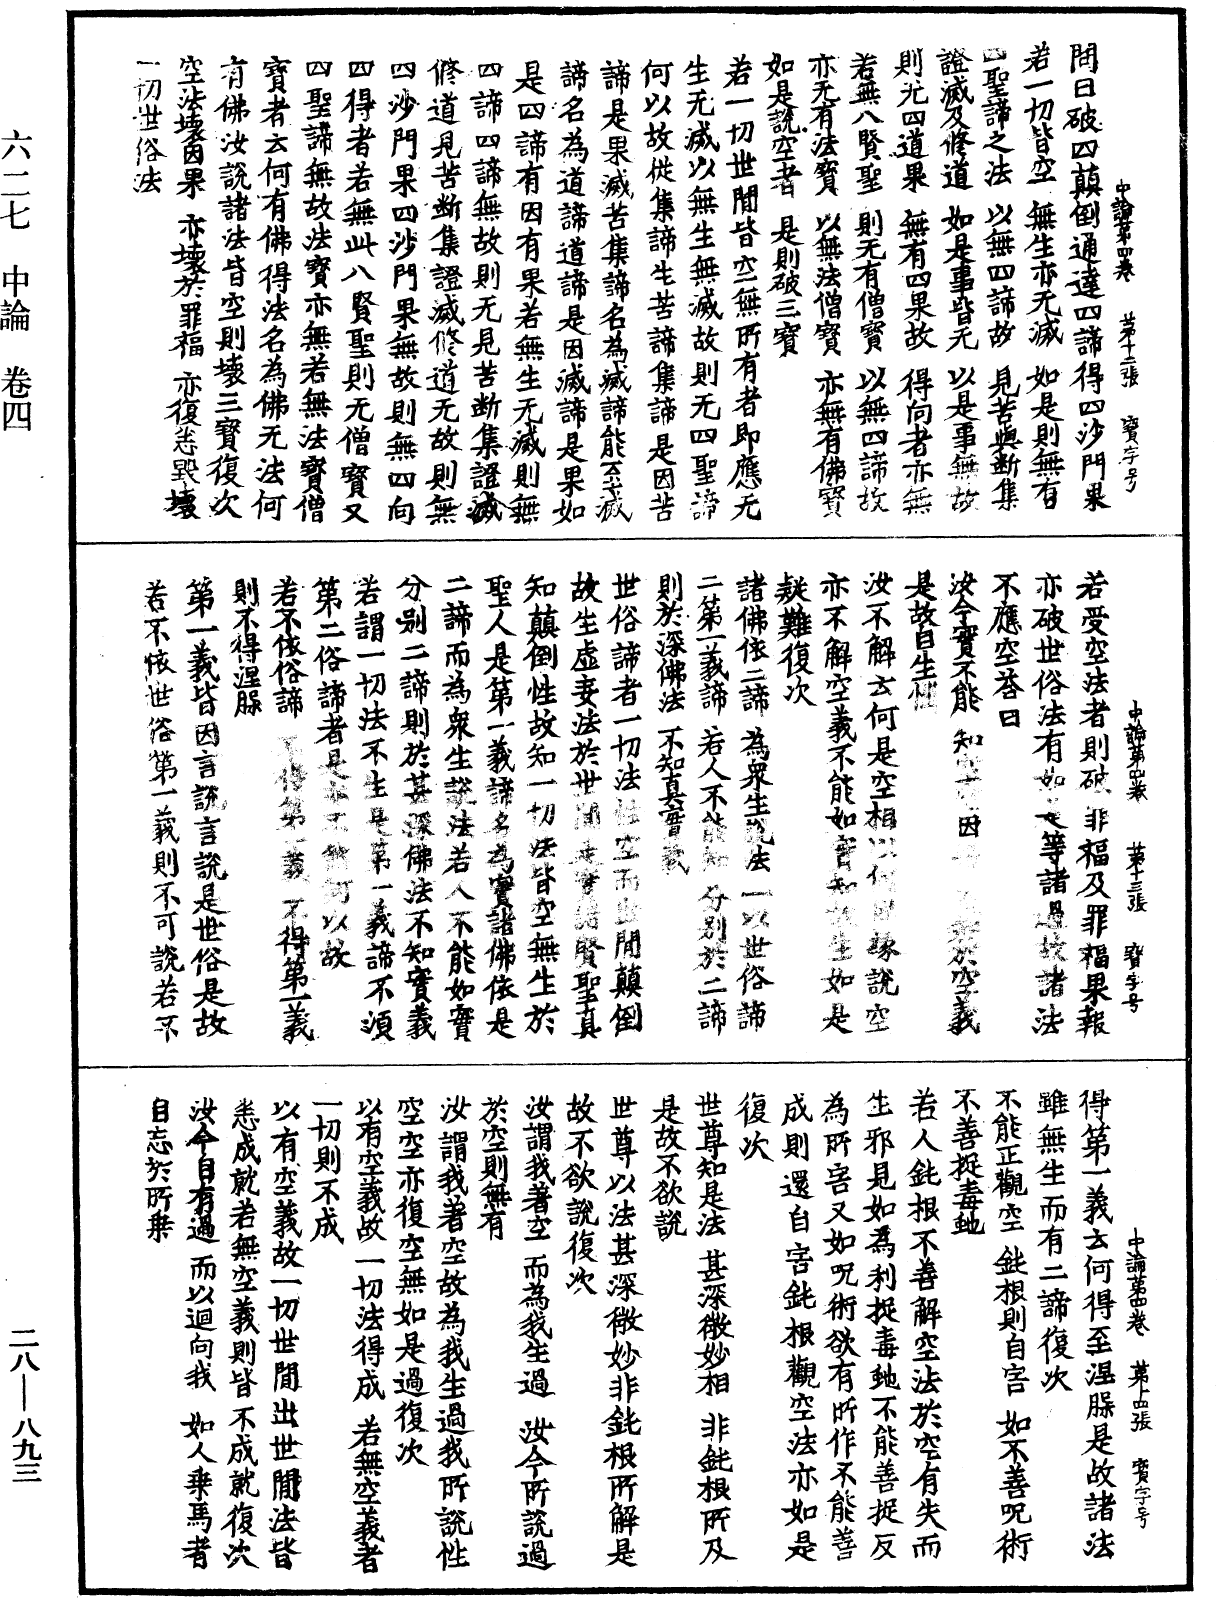 六二七　中論　卷四
二八—八九三
中論第四卷　第十二張　寳字号
問曰破四顛倒通達四諦得四沙門果
若一切皆空　無生亦无滅　如是則無有
四聖諦之法　以無四諦故　見苦與斷集
證滅及修道　如是事皆无　以是事無故
則无四道果　無有四果故　得向者亦無
若無八賢聖　則无有僧寶　以無四諦故
亦无有法寶　以無法僧寶　亦無有佛寶
如是說空者　是則破三寶
若一切世間皆空無所有者即應无
生无滅以無生無滅故則无四聖諦
何以故從集諦生苦諦集諦是因苦
諦是果滅苦集諦名為滅諦能至滅
諦名為道諦道諦是因滅諦是果如
是四諦有因有果若無生无滅則無
四諦四諦無故則无見苦斷集證滅
修道見苦斷集證滅修道无故則無
四沙門果四沙門果無故則無四向
四得者若無此八賢聖則无僧寶又
四聖諦無故法寶亦無若無法寶僧
寶者云何有佛得法名為佛无法何
有佛汝說諸法皆空則壞三寶復次
空法壞因果　亦壞於罪福　亦復悉毀壞
一切世俗法
中論第四卷　第十三張　寳字号
若受空法者則破罪福及罪福果報
亦破世俗法有如是等諸過故諸法
不應空荅曰
汝今實不能　知空空因　義於空義
是故自生惱
汝不解云何是空相以何因緣說空
亦不解空義不能如實知故生如是
疑難復次
諸佛依二諦　為眾生說法　一以世俗諦
二第一義諦　若人不能知　分別於二諦
則於深佛法　不知真實義
世俗諦者一切法性空而世間顛倒
故生虛妄法於世間是實諸賢聖真
知顛倒性故知一切法皆空無生於
聖人是第一義諦名為實諸佛依是
二諦而為眾生說法若人不能如實
分別二諦則於甚深佛法不知實義
若謂一切法不生是第一義諦不湏
第二俗諦者是亦不然何以故
若不依俗諦　不得第一義　不得第一義
則不得涅槃
第一義皆因言說言說是世俗是故
若不依世俗第一義則不可說若不
中論第四卷　第十四張　寳字号
得第一義云何得至涅槃是故諸法
雖無生而有二諦復次
不能正觀空　鈍根則自害　如不善呪術
不善捉毒虵
若人鈍根不善解空法於空有失而
生邪見如為利捉毒虵不能善捉反
為所害又如呪術欲有所作不能善
成則還自害鈍根觀空法亦如是
復次
世尊知是法　甚深微妙相　非鈍根所及
是故不欲說
世尊以法甚深微妙非鈍根所解是
故不欲說復次
汝謂我著空　而為我生過　汝今所說過
於空則無有
汝謂我著空故為我生過我所說性
空空亦復空無如是過復次
以有空義故　一切法得成　若無空義者
一切則不成
以有空義故一切世間出世間法皆
悉成就若無空義則皆不成就復次
汝今自有過　而以迴向我　如人乗馬者
自忘於所乗